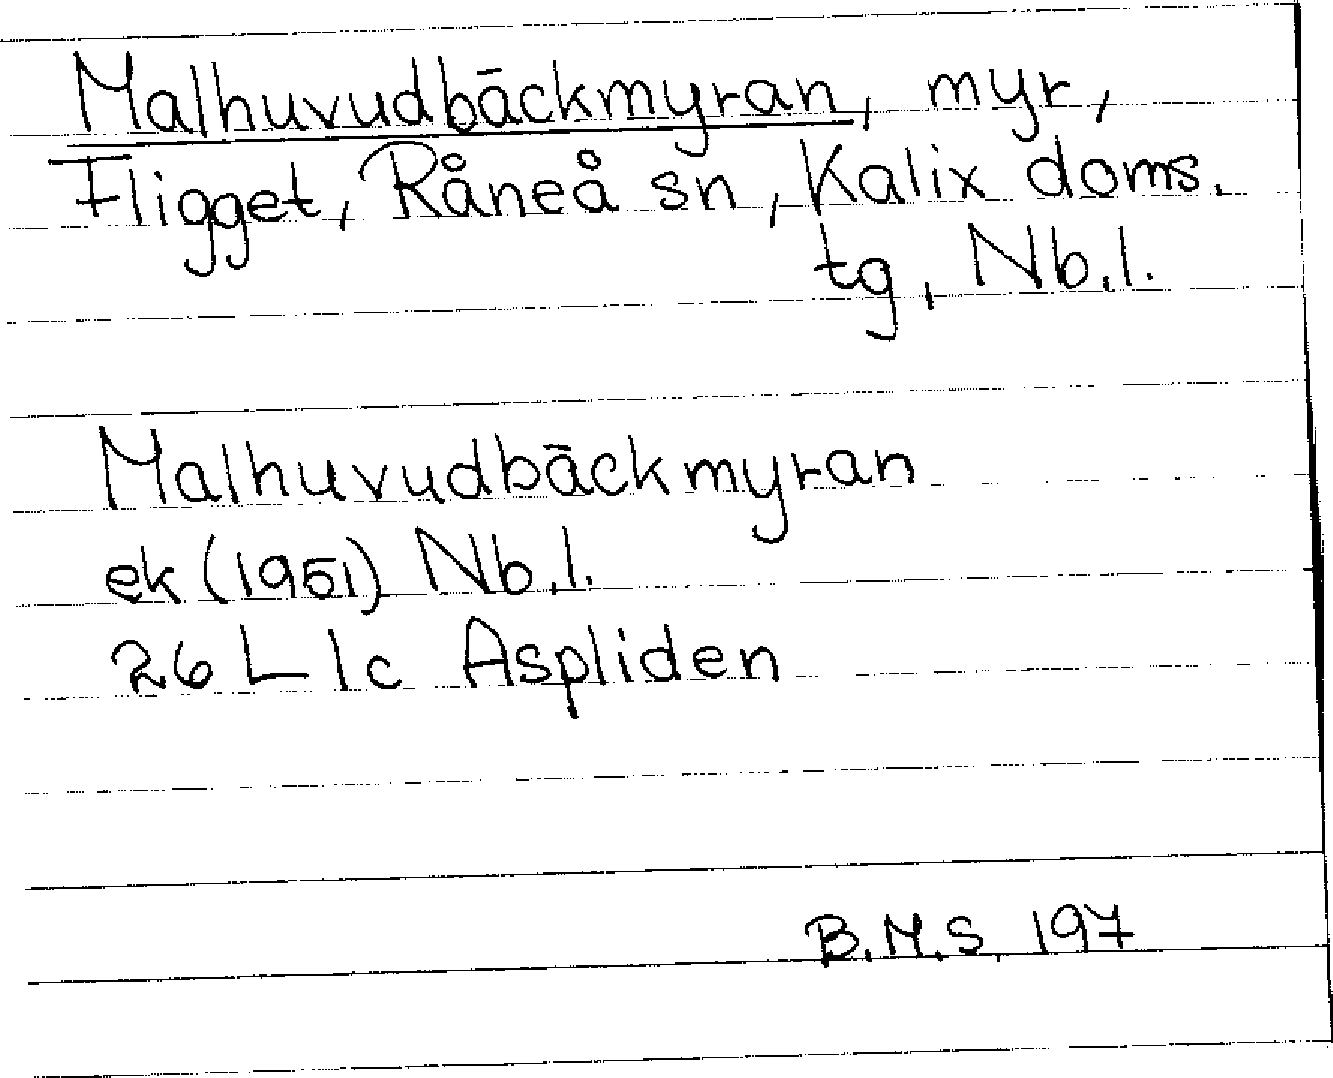 Malhuvudbäckmyran, myr,
Fligget, Råneå sn, Kalix doms.
tg, Nb.l.
Malhuvudbäckmyran
ek (1951) Nb.l.
26 L 1c Aspliden
B.M.S. 197